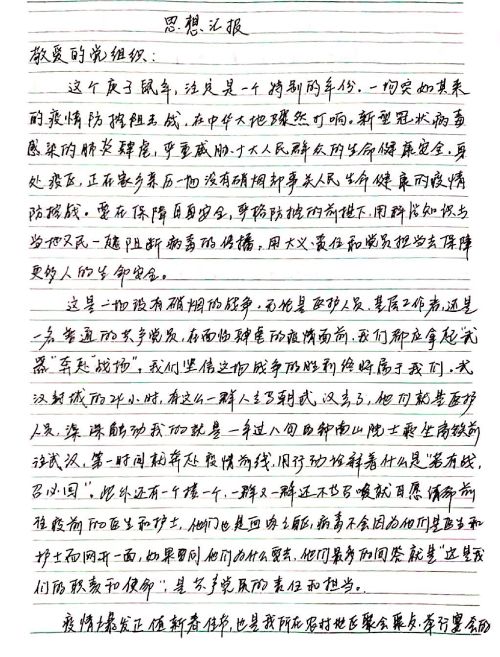 思想汇报
敬爱的党组织:
这个庚子鼠年,注定是一个特别的年份。一场突如其来
的疫情防控阻击战,在中华大地骤然打响。新型冠状病毒
感染的肺炎肆虐,严重威胁广大人民群众的生命健康安全。身
处疫区,正在家乡亲历一场没有硝烟却事关人民生命健康的疫情
防控战。要在保障自身安全,严格防控的前提下,用科学知识与
当地人民一起阻断病毒的传播,用大义、责任和党员担当去保障
更多人的生命安全。
这是一场没有硝烟的战争。无论是医护人员、基层工作者,还是
一名普通的共产党员,在面临肆虐的疫情面前,我们都应拿起"武
器"奔赴"战场"。我们坚信这场战争的胜利终将属于我们。武
汉封城的24小时,有这么一群人去了朝武汉去了,他们就是医护
人员,深深触动我的就是一年过八旬的钟南山院士乘坐高铁前
往武汉,第一时间就奔赴疫情前线,用行动诠释着什么是"若有战,
召必回"。此外还有一个接一个,一群又一群还不等召唤就自愿请命前
往疫前的医生和护士,他们也是血肉之躯,病毒不会因为他们是医生和
护士而网开一面,如果要问他们为什么要去,他们最多的回答就是"这是我
们的职责和使命",是共产党员的责任和担当。
疫情大爆发正值新春佳节,也是我所在农村地区聚会聚点、举行宴会的